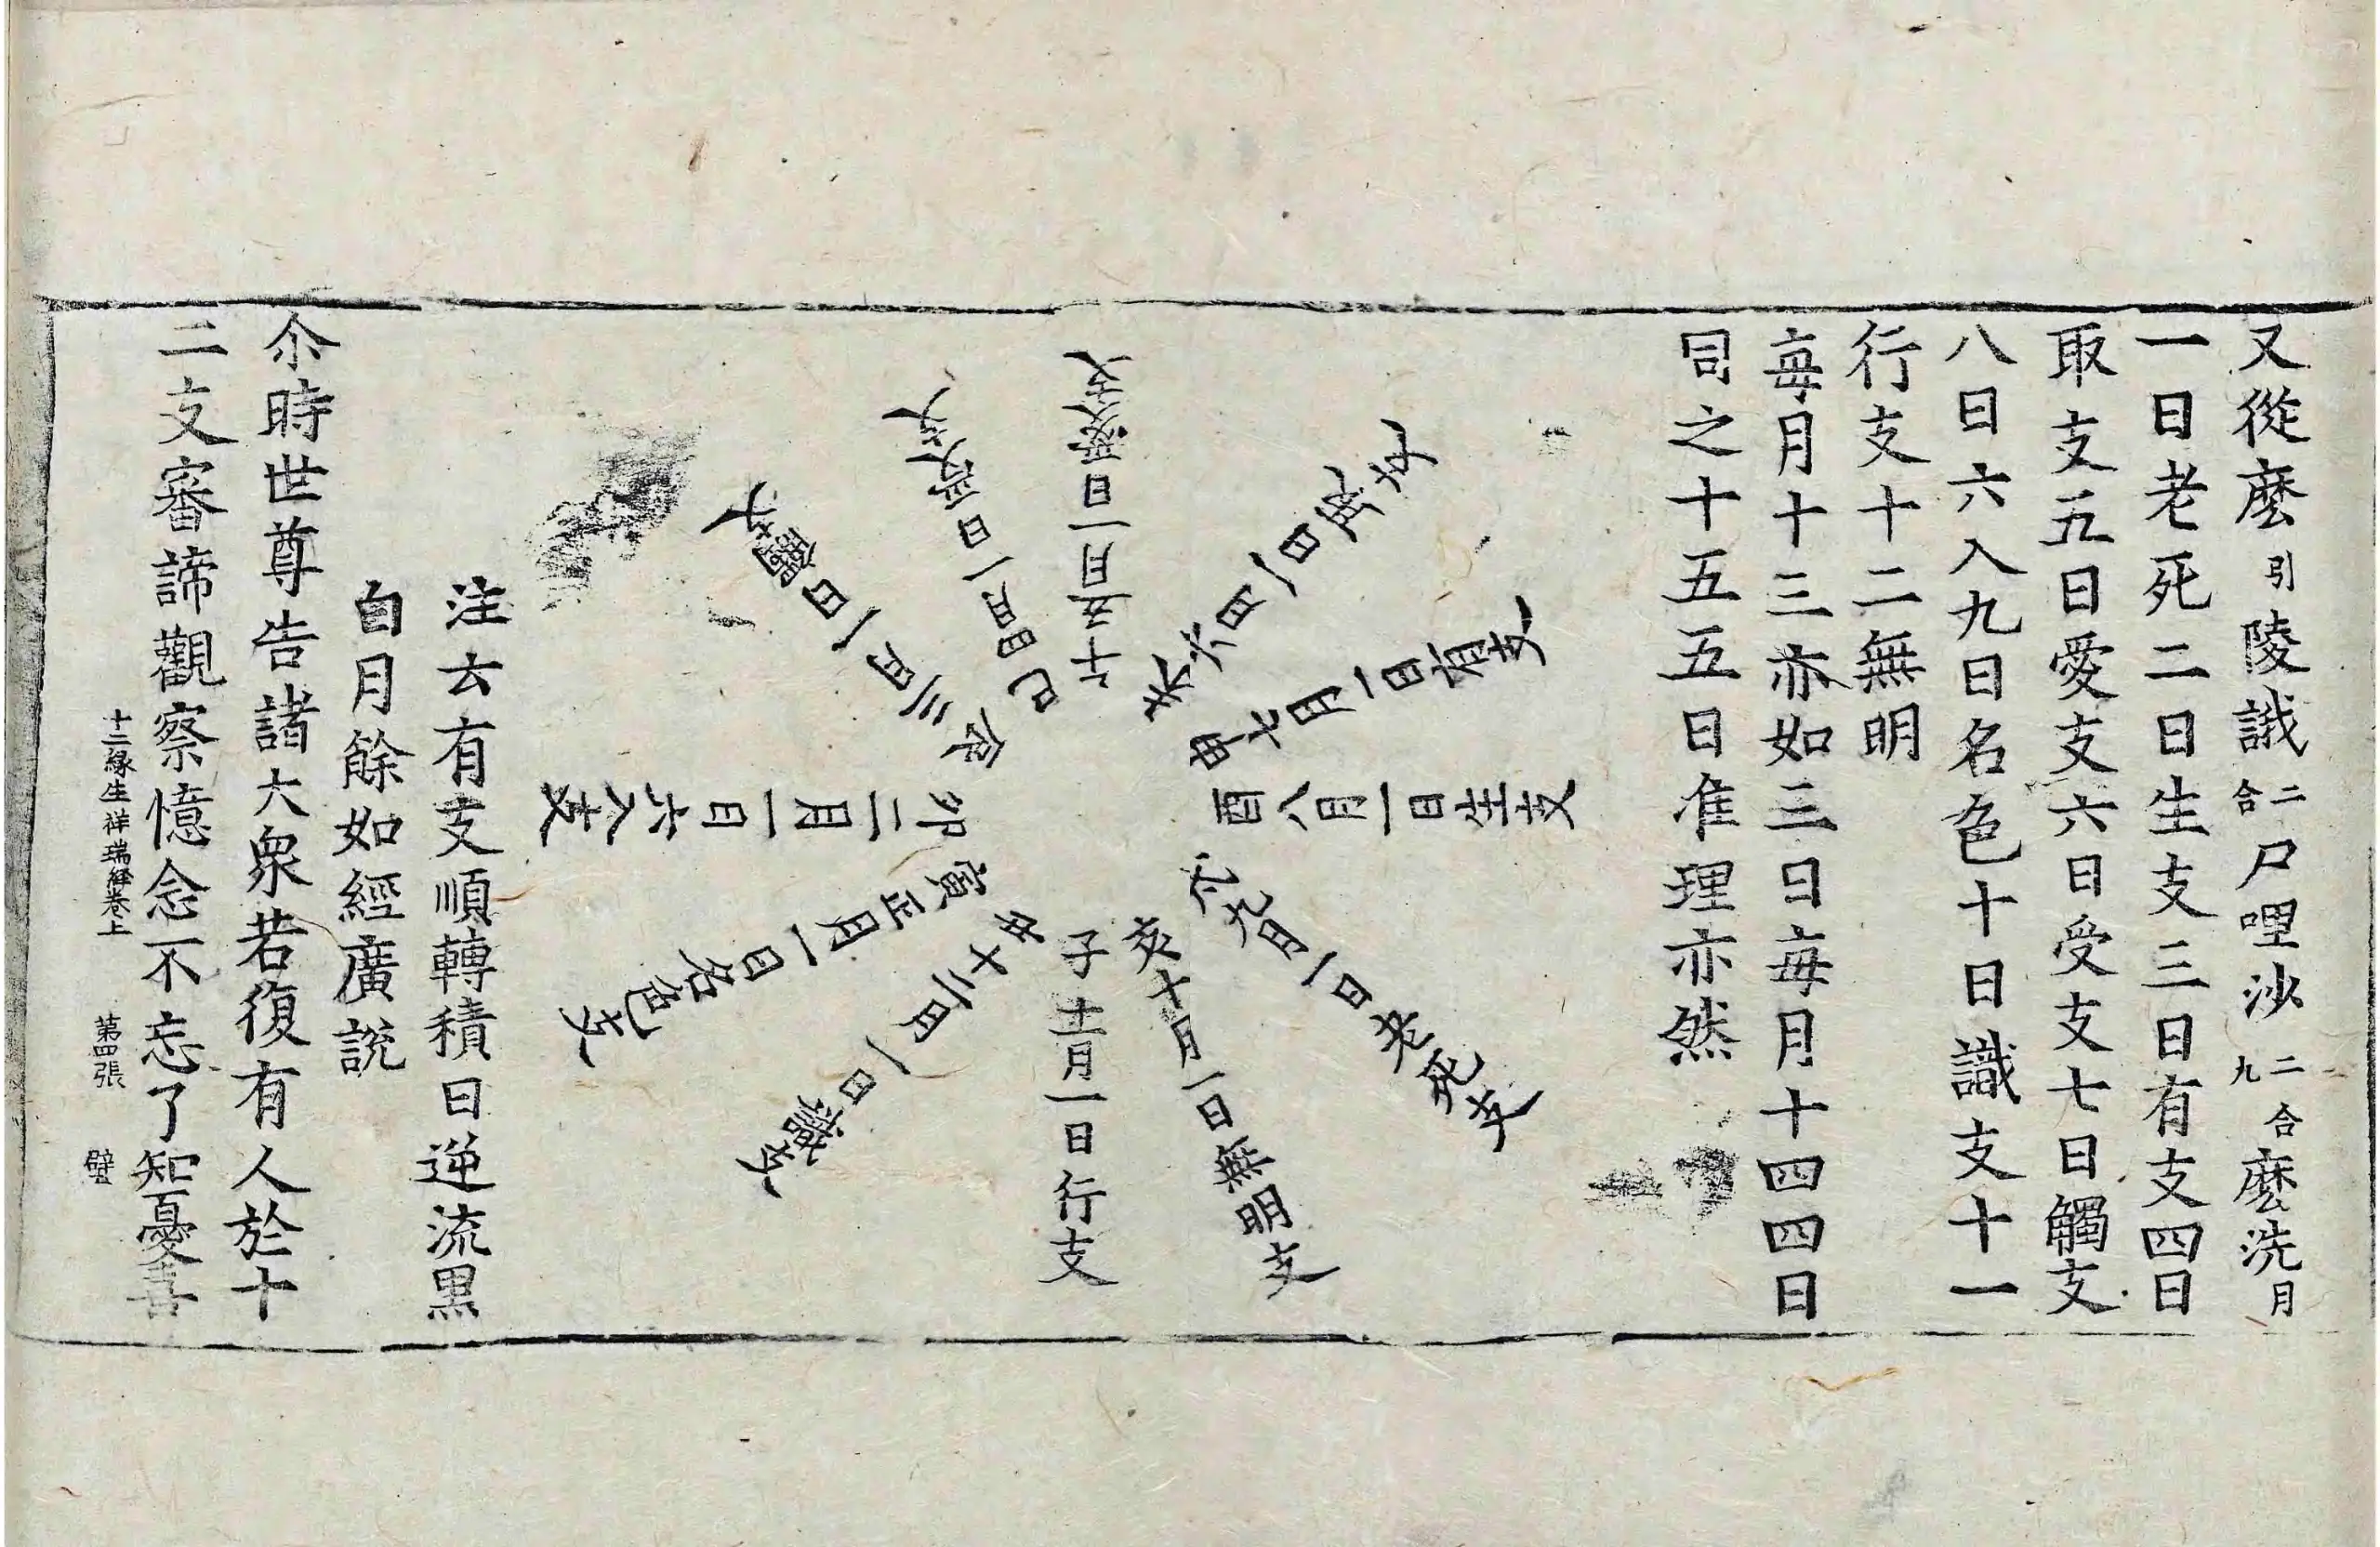 又從麼引陵誐二合尸哩沙二合九麼洗月
一日老死二日生支三日有支四日
取支五日愛支六日受支七日觸支
八日六入九日名色十日識支十一
行支十二無明
每月十三亦如三日每月十四四日
同之十五五日准理亦然
子十一月一日行支
丑十二月一日識支
寅正月一日名色支
卯二月一日六入支
辰三月一日觸支
巳四月一日受支
午五月一日愛支
未六月一日取支
申七月一日有支
酉八月一日生支
戌九月一日老死支
亥十月一日無明支
注云有支順轉積日逆流黑
白月餘如經廣說
尒時世尊告諸大衆若復有人於十
二支審諦觀察憶念不忘了知憂喜
十二緣生祥瑞經卷上 第四張 壁